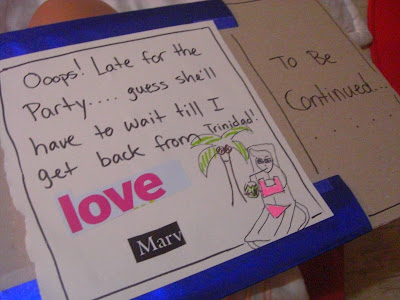 Ooops! Late for the
Party.... guess she'll
have to wait till I
get back from Trinidad!
love
Marv
To Be
Continued...